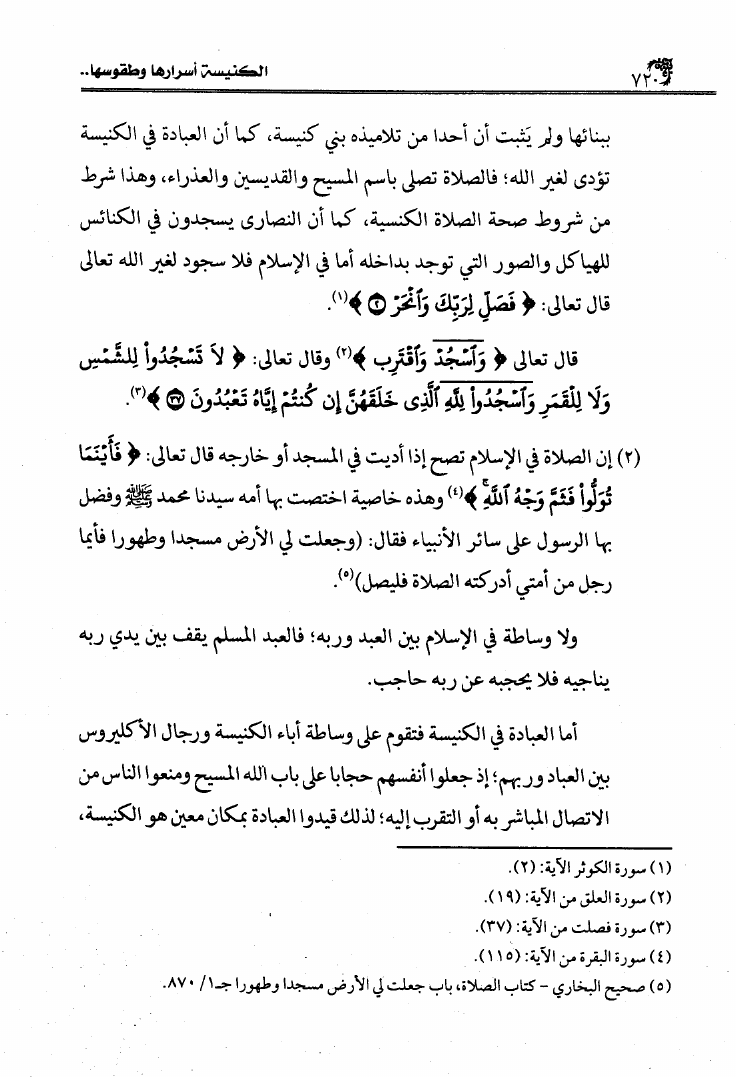 ٧٢٠
الكنيسة أسرارها وطقوسها..
ببنائها ولم يَثبت أن أحدا من تلاميذه بني كنيسة، كما أن العبادة في الكنيسة
تؤدى لغير الله؛ فالصلاة تصلى باسم المسيح والقديسين والعذراء، وهذا شرط
من شروط صحة الصلاة الكنسية، كما أن النصارى يسجدون في الكنائس
للهياكل والصور التي توجد بداخله أما في الإسلام فلا سجود لغير الله تعالى
قال تعالى: ﴿ فَصَلِّ لِرَبِّكَ وَٱنْحَرْ ۝٢ ﴾(١).
قال تعالى ﴿ وَٱسْجُدْ وَٱقْتَرِب ﴾(٢) وقال تعالى: ﴿ لَا تَسْجُدُواْ لِلشَّمْسِ
وَلَا لِلْقَمَرِ وَٱسْجُدُواْ لِلَّهِ ٱلَّذِى خَلَقَهُنَّ إِن كُنتُمْ إِيَّاهُ تَعْبُدُونَ ۝٣٧ ﴾(٣).
(٢) إن الصلاة في الإسلام تصح إذا أديت في المسجد أو خارجه قال تعالى: ﴿ فَأَيْنَمَا
تُوَلُّواْ فَثَمَّ وَجْهُ ٱللَّهِ ۚ ﴾(٤) وهذه خاصية اختصت بها أمه سيدنا محمد ﷺ وفضل
بها الرسول على سائر الأنبياء فقال: (وجعلت لي الأرض مسجدا وطهورا فأيما
رجل من أمتي أدركته الصلاة فليصل)(٥).
ولا وساطة في الإسلام بين العبد وربه؛ فالعبد المسلم يقف بين يدي ربه
يناجيه فلا يحجبه عن ربه حاجب.
أما العبادة في الكنيسة فتقوم على وساطة أباء الكنيسة ورجال الأكليروس
بين العباد وربهم؛ إذ جعلوا أنفسهم حجابا على باب الله المسيح ومنعوا الناس من
الاتصال المباشر به أو التقرب إليه؛ لذلك قيدوا العبادة بمكان معين هو الكنيسة،
(١) سورة الكوثر الآية: (٢).
(٢) سورة العلق من الآية: (١٩).
(٣) سورة فصلت من الآية: (٣٧).
(٤) سورة البقرة من الآية: (١١٥).
(٥) صحيح البخاري – كتاب الصلاة، باب جعلت لي الأرض مسجدا وطهورا جـ١/ ٨٧٠.